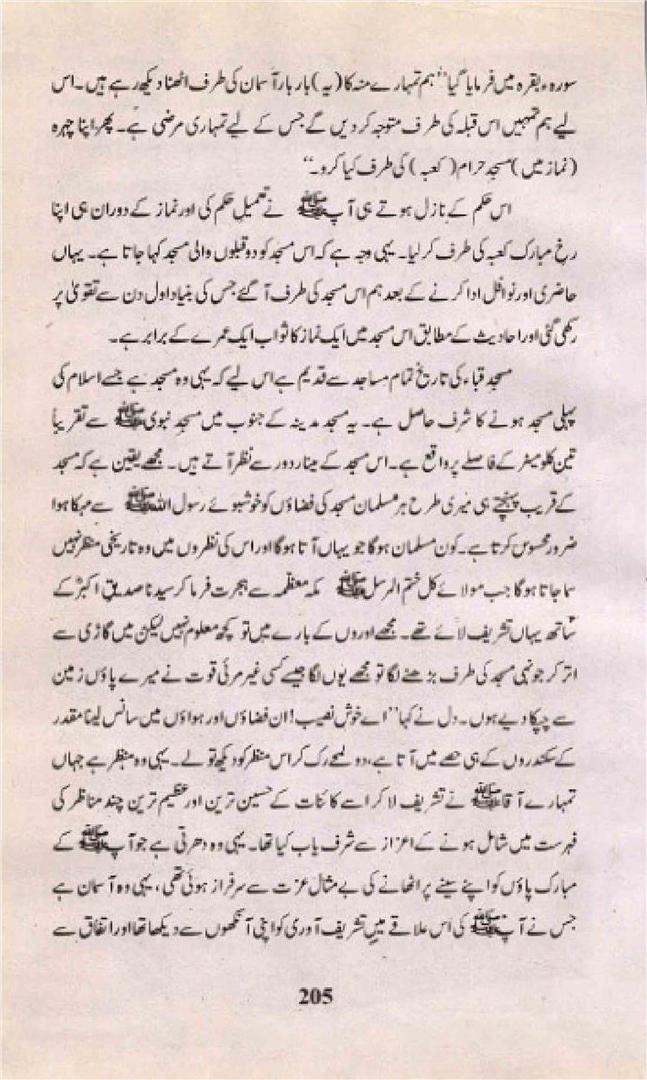 سورہء بقرہ میں فرمایا گیا ’’ہم تمہارے منہ کا (یہ) بار بار آسمان کی طرف اٹھنا دیکھ رہے ہیں۔ اس
لیے ہم تمہیں اس قبلہ کی طرف متوجہ کر دیں گے جس کے لیے تمہاری مرضی ہے۔ پھر اپنا چہرہ
(نماز میں) مسجد حرام (کعبہ) کی طرف کیا کرو۔‘‘
اس حکم کے نازل ہوتے ہی آپ ﷺ نے تعمیل حکم کی اور نماز کے دوران ہی اپنا
رخ مبارک کعبہ کی طرف کر لیا۔ یہی وجہ ہے کہ اس مسجد کو دو قبلوں والی مسجد کہا جاتا ہے۔ یہاں
حاضری اور نوافل ادا کرنے کے بعد ہم اس مسجد کی طرف آ گئے جس کی بنیاد اول دن سے تقویٰ پر
رکھی گئی اور احادیث کے مطابق اس مسجد میں ایک نماز کا ثواب ایک عمرے کے برابر ہے۔
مسجد قباء کی تاریخ تمام مساجد سے قدیم ہے اس لیے کہ یہی وہ مسجد ہے جسے اسلام کی
پہلی مسجد ہونے کا شرف حاصل ہے۔ یہ مسجد مدینہ کے جنوب میں مسجدِ نبوی ﷺ سے تقریباً
تین کلومیٹر کے فاصلے پر واقع ہے۔ اس مسجد کے مینار دور سے نظر آتے ہیں۔ مجھے یقین ہے کہ مسجد
کے قریب پہنچتے ہی میری طرح ہر مسلمان مسجد کی فضاؤں کو خوشبوئے رسول اللہ ﷺ سے مہکا ہوا
ضرور محسوس کرتا ہے۔ کون مسلمان ہوگا جو یہاں آتا ہوگا اور اس کی نظروں میں وہ تاریخی منظر نہیں
سما جاتا ہوگا جب مولائے کل ختم الرسل ﷺ مکہ معظمہ سے ہجرت فرما کر سیدنا صدیقِ اکبرؓ کے
ساتھ یہاں تشریف لائے تھے۔ مجھے اوروں کے بارے میں تو کچھ معلوم نہیں لیکن میں گاڑی سے
اتر کر جونہی مسجد کی طرف بڑھنے لگا تو مجھے یوں لگا جیسے کسی غیر مرئی قوت نے میرے پاؤں زمین
سے چپکا دیے ہوں۔ دل نے کہا ’’اے خوش نصیب! ان فضاؤں اور ہواؤں میں سانس لینا مقدر
کے سکندروں کے ہی حصے میں آتا ہے، دو لمحے رک کر اس منظر کو دیکھ تو لے۔ یہی وہ منظر ہے جہاں
تمہارے آقا ﷺ نے تشریف لا کر اسے کائنات کے حسین ترین اور عظیم ترین چند مناظر کی
فہرست میں شامل ہونے کے اعزاز سے شرف یاب کیا تھا۔ یہی وہ دھرتی ہے جو آپ ﷺ کے
مبارک پاؤں کو اپنے سینے پر اٹھانے کی بے مثال عزت سے سرفراز ہوئی تھی، یہی وہ آسمان ہے
جس نے آپ ﷺ کی اس علاقے میں تشریف آوری کو اپنی آنکھوں سے دیکھا تھا اور اتفاق سے
205